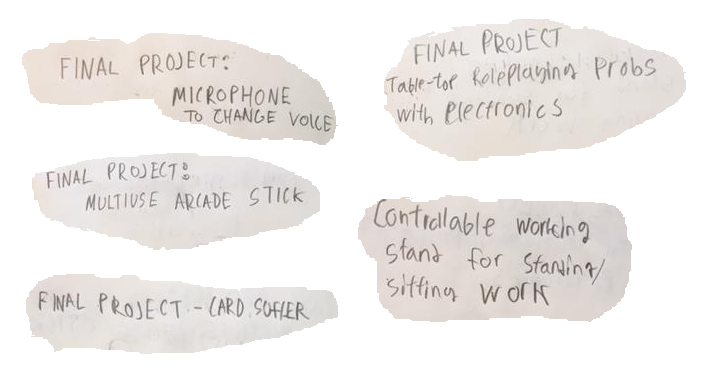 FINAL PROJECT:
MICROPHONE
TO CHANGE VOICE
FINAL PROJECT:
MULTIUSE ARCADE STICK
FINAL PROJECT - CARD SOFFER
FINAL PROJECT
Table-top Roleplaying Probs
with Electronics
Controllable working
stand for standing/
sitting work